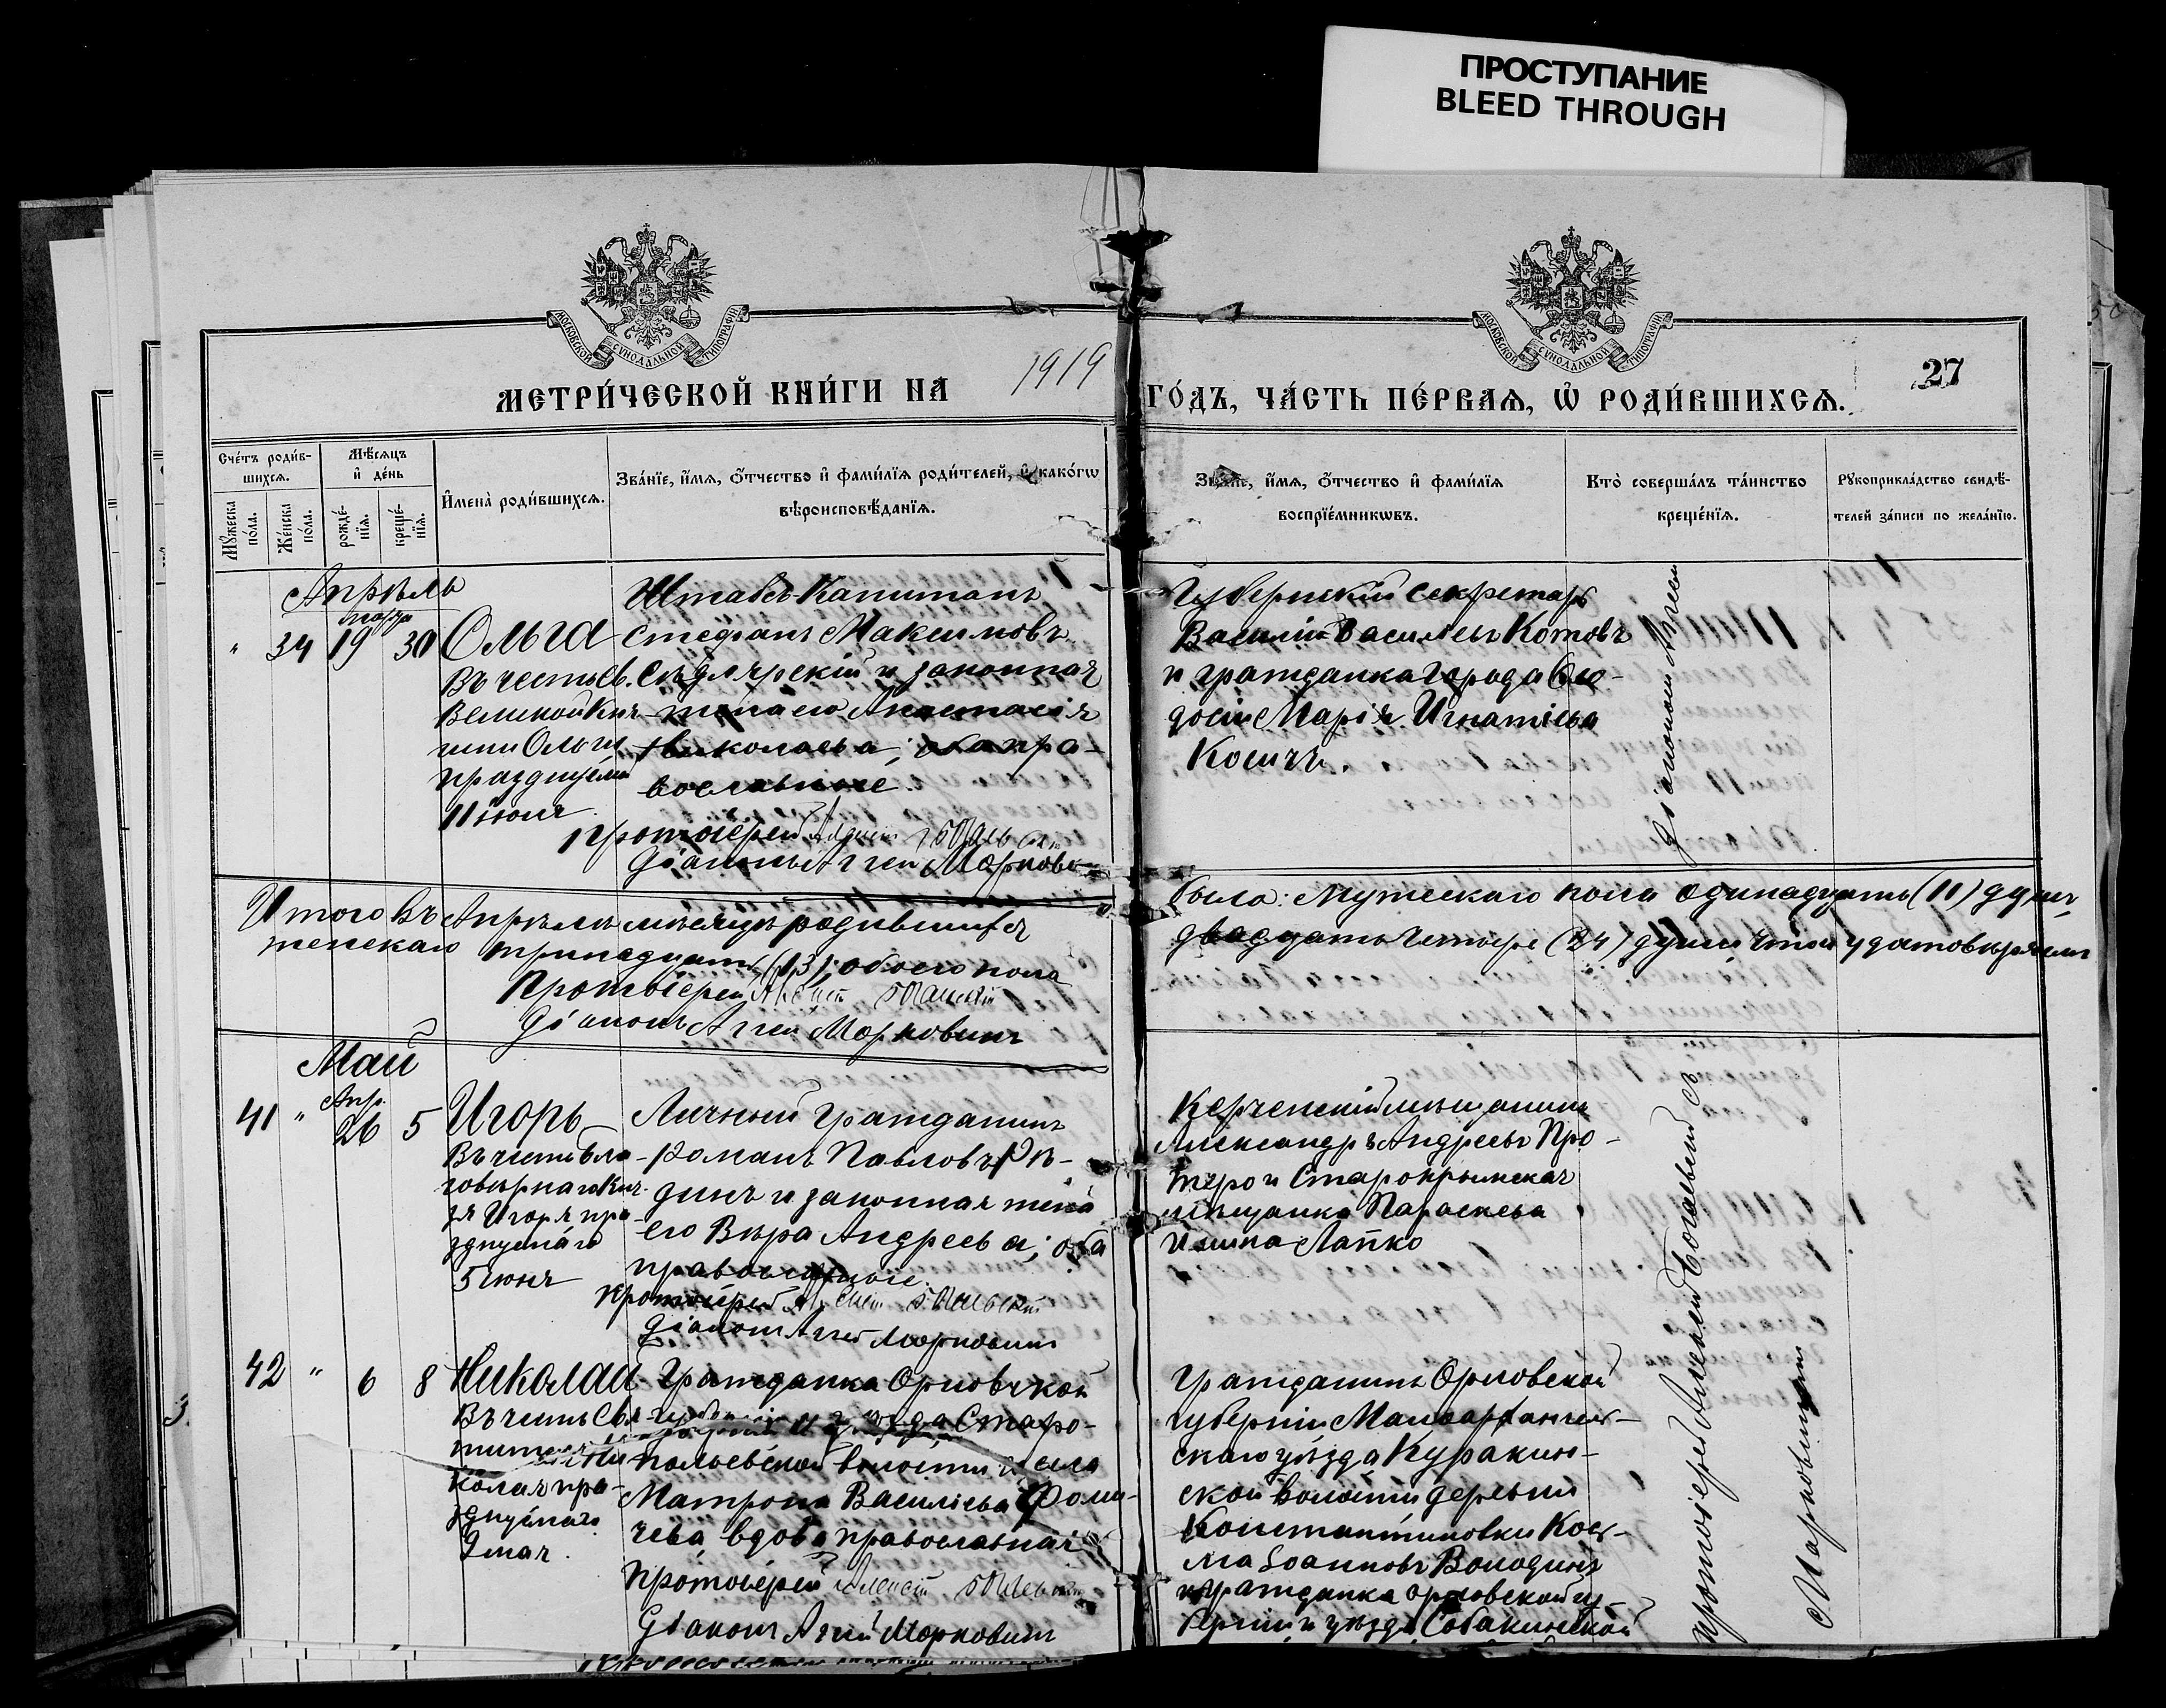 ПРОСТУПАНИЕ
BLEED THROUGH
МОСКОВСКОЙ СѴНОДАЛЬНОЙ ТИПОГРАФІИ
МОСКОВСКОЙ СѴНОДАЛЬНОЙ ТИПОГРАФІИ
МЕТРИ́ЧЕСКОЙ КНИ́ГИ НА 1919 ГО́ДЪ, ЧА́СТЬ ПЕ́РВАЯ, Ѡ҆ РОДИ́ВШИХСЯ.
27
Сче́тъ роди́в-
шихся.
Мꙋ́жеска по́ла.
Же́нска по́ла.
Мѣ́сяцъ
и҆ де́нь
рожде́-
нїя.
креще́-
нїя.
И҆мена̀ роди́вшихся.
Зва́нїе, и҆́мя, ѻ҆́тчество и҆ фами́лїя роди́телей, и҆ како́гѡ
вѣроисповѣ́данїя.
Зва́нїе, и҆́мя, ѻ҆́тчество и҆ фами́лїя
воспрїе́мникѡвъ.
Кто̀ соверша́лъ та́инство
креще́нїя.
Рꙋкоприкла́дство свидѣ́-
телей за́писи по жела́нїю.
Апрѣль
марта
" 34 19 30
Ольга
Въ честь св.
Великой Кня-
гини Ольги
празднуемой
11 іюля
Штабсъ-Капитанъ
Стефанъ Максимовъ
и законная
жена его Анастасія
Николаева; оба пра-
вославные.
Протоіерей
Діаконъ Аггей Марковинъ
Губернскій Секретарь
Василій Васильевъ Котовъ
и гражданка города Ѳео-
досіи Марія Игнатіева
Косичъ.
Итого въ Апрѣлѣ мѣсяцѣ родившихся было: Мужескаго пола одинадцать (11) душъ,
женскаго тринадцать (13); обоего пола двадцать четыре (24) души, что и удостовѣряемъ
Протоіерей
Діаконъ Аггей Марковинъ
Май
Апр.
41 " 26 5
Игорь
Въ честь Бла-
говѣрнаго Кня-
зя Игоря пра-
зднуемаго
5 іюня
Личный Гражданинъ
Романъ Павловъ Рѣ-
динъ и законная жена
его Вѣра Андреева; оба
православные.
Протоіерей
Діаконъ Аггей Марковинъ
Керченскій мѣщанинъ
Александръ Андреевъ Про-
и Старокрымская
мѣщанка Параскева
Лапко
42 " 6 8
Николай
Въ честь Свя-
тителя Ни-
колая пра-
зднуемаго
9 мая.
Гражданка Орловской
губерніи и уѣзда Старо-
волости и села
Матрона Васильева Фоми-
чева, вдова, православная
Протоіерей
Діаконъ Аггей Марковинъ
Гражданинъ Орловской
губерніи, Малоархангель-
скаго уѣзда Куракин-
ской волости деревни
Константиновки Козь-
ма Іоанновъ Володинъ
и гражданка Орловской гу-
берніи и уѣзда, Собакинской
Протоіерей Алексѣй съ
Діакономъ Аггеемъ
Марковинымъ